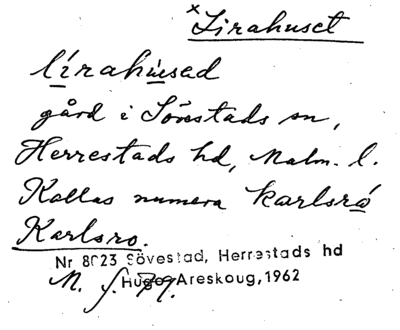 ×Lirahuset
lirahused
gård i Sövestads sn,
Herrestads hd, Malm. l.
Kallas numera karlsro
Karlsro.
Nr 8023 Sövestad, Herrestads hd
Hugo Areskoug, 1962
M. S. 79.